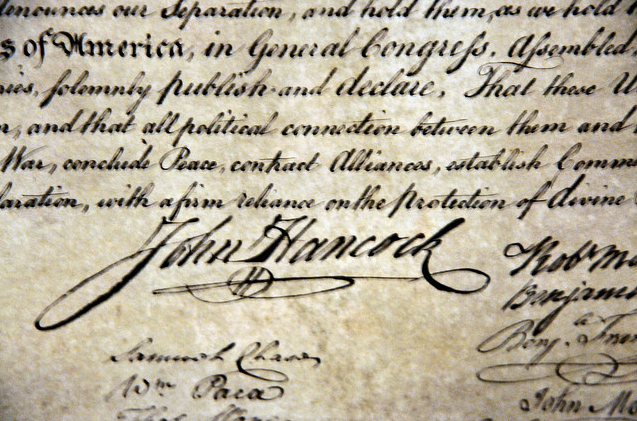 denounces our Separation, and hold them, as we hold
s of America, in General Congress, Assembled,
ries, solemnly publish and declare, That these U
n, and that all political connection between them and
War, conclude Peace, contract Alliances, establish Comm
laration, with a firm reliance on the Protection of divine
John Hancock
Robt Mo
Benjami
Benj. Fran
Samuel Chase
Wm Paca
John Mo